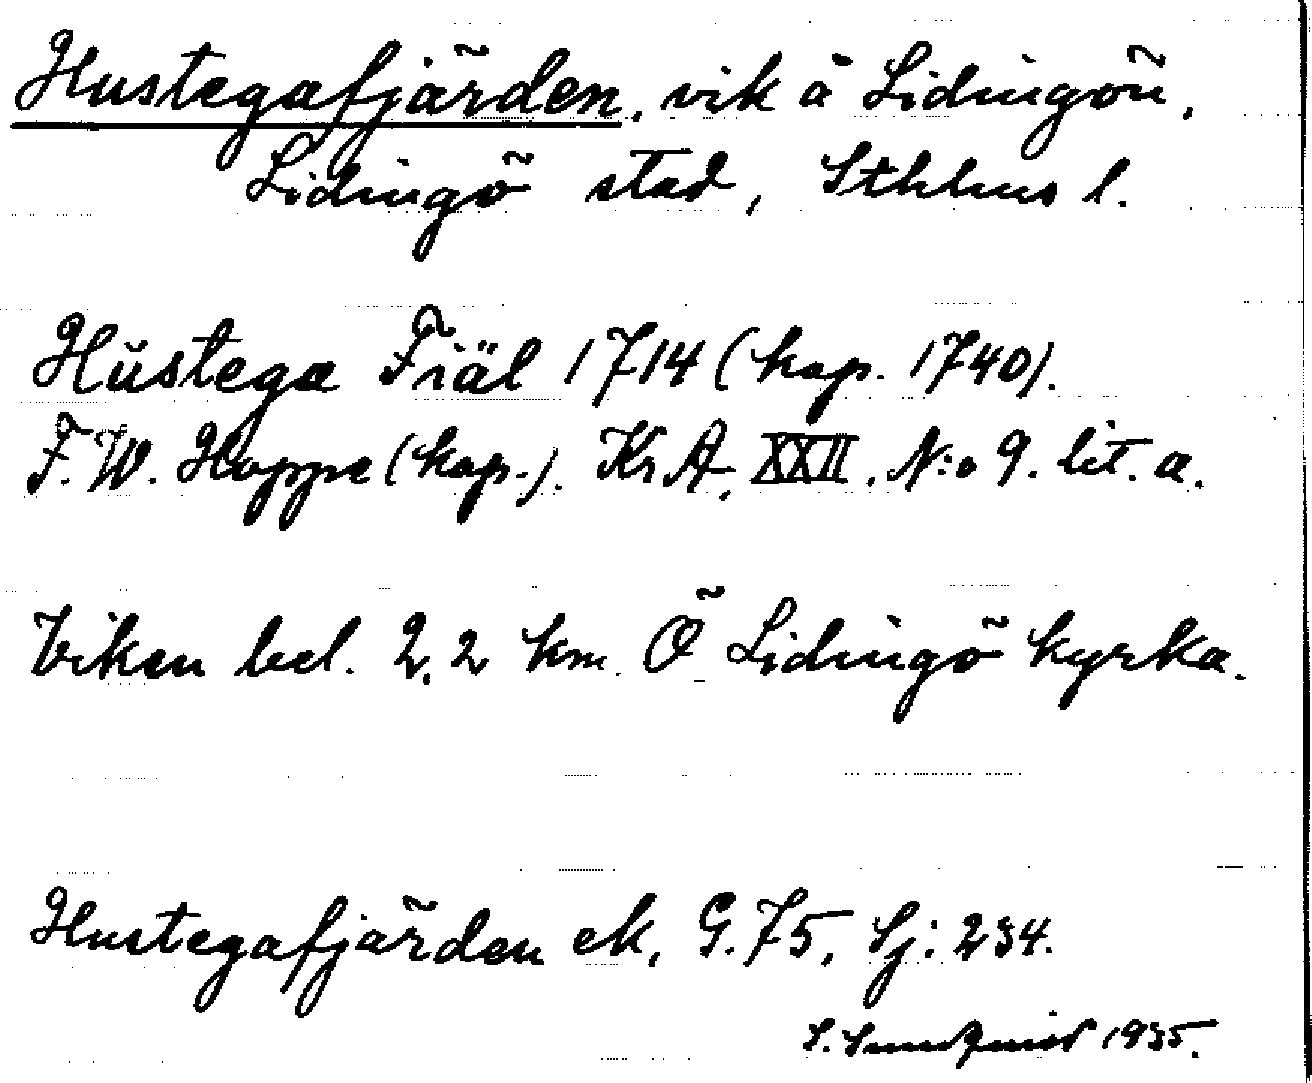 Hustegafjärden, vik å Lidingön,
Lidingö stad, Sthlms l.
Hŭstega Fiäl 1714 (kop. 1740).
F. W. Hoppe (kop.). Kr A, XXII. N:o 9. lit. a.
Viken bel. 2,2 km. Ö Lidingö kyrka.
Hustegafjärden ek, G. 75, Sj: 234.
S. Sundquist 1935.